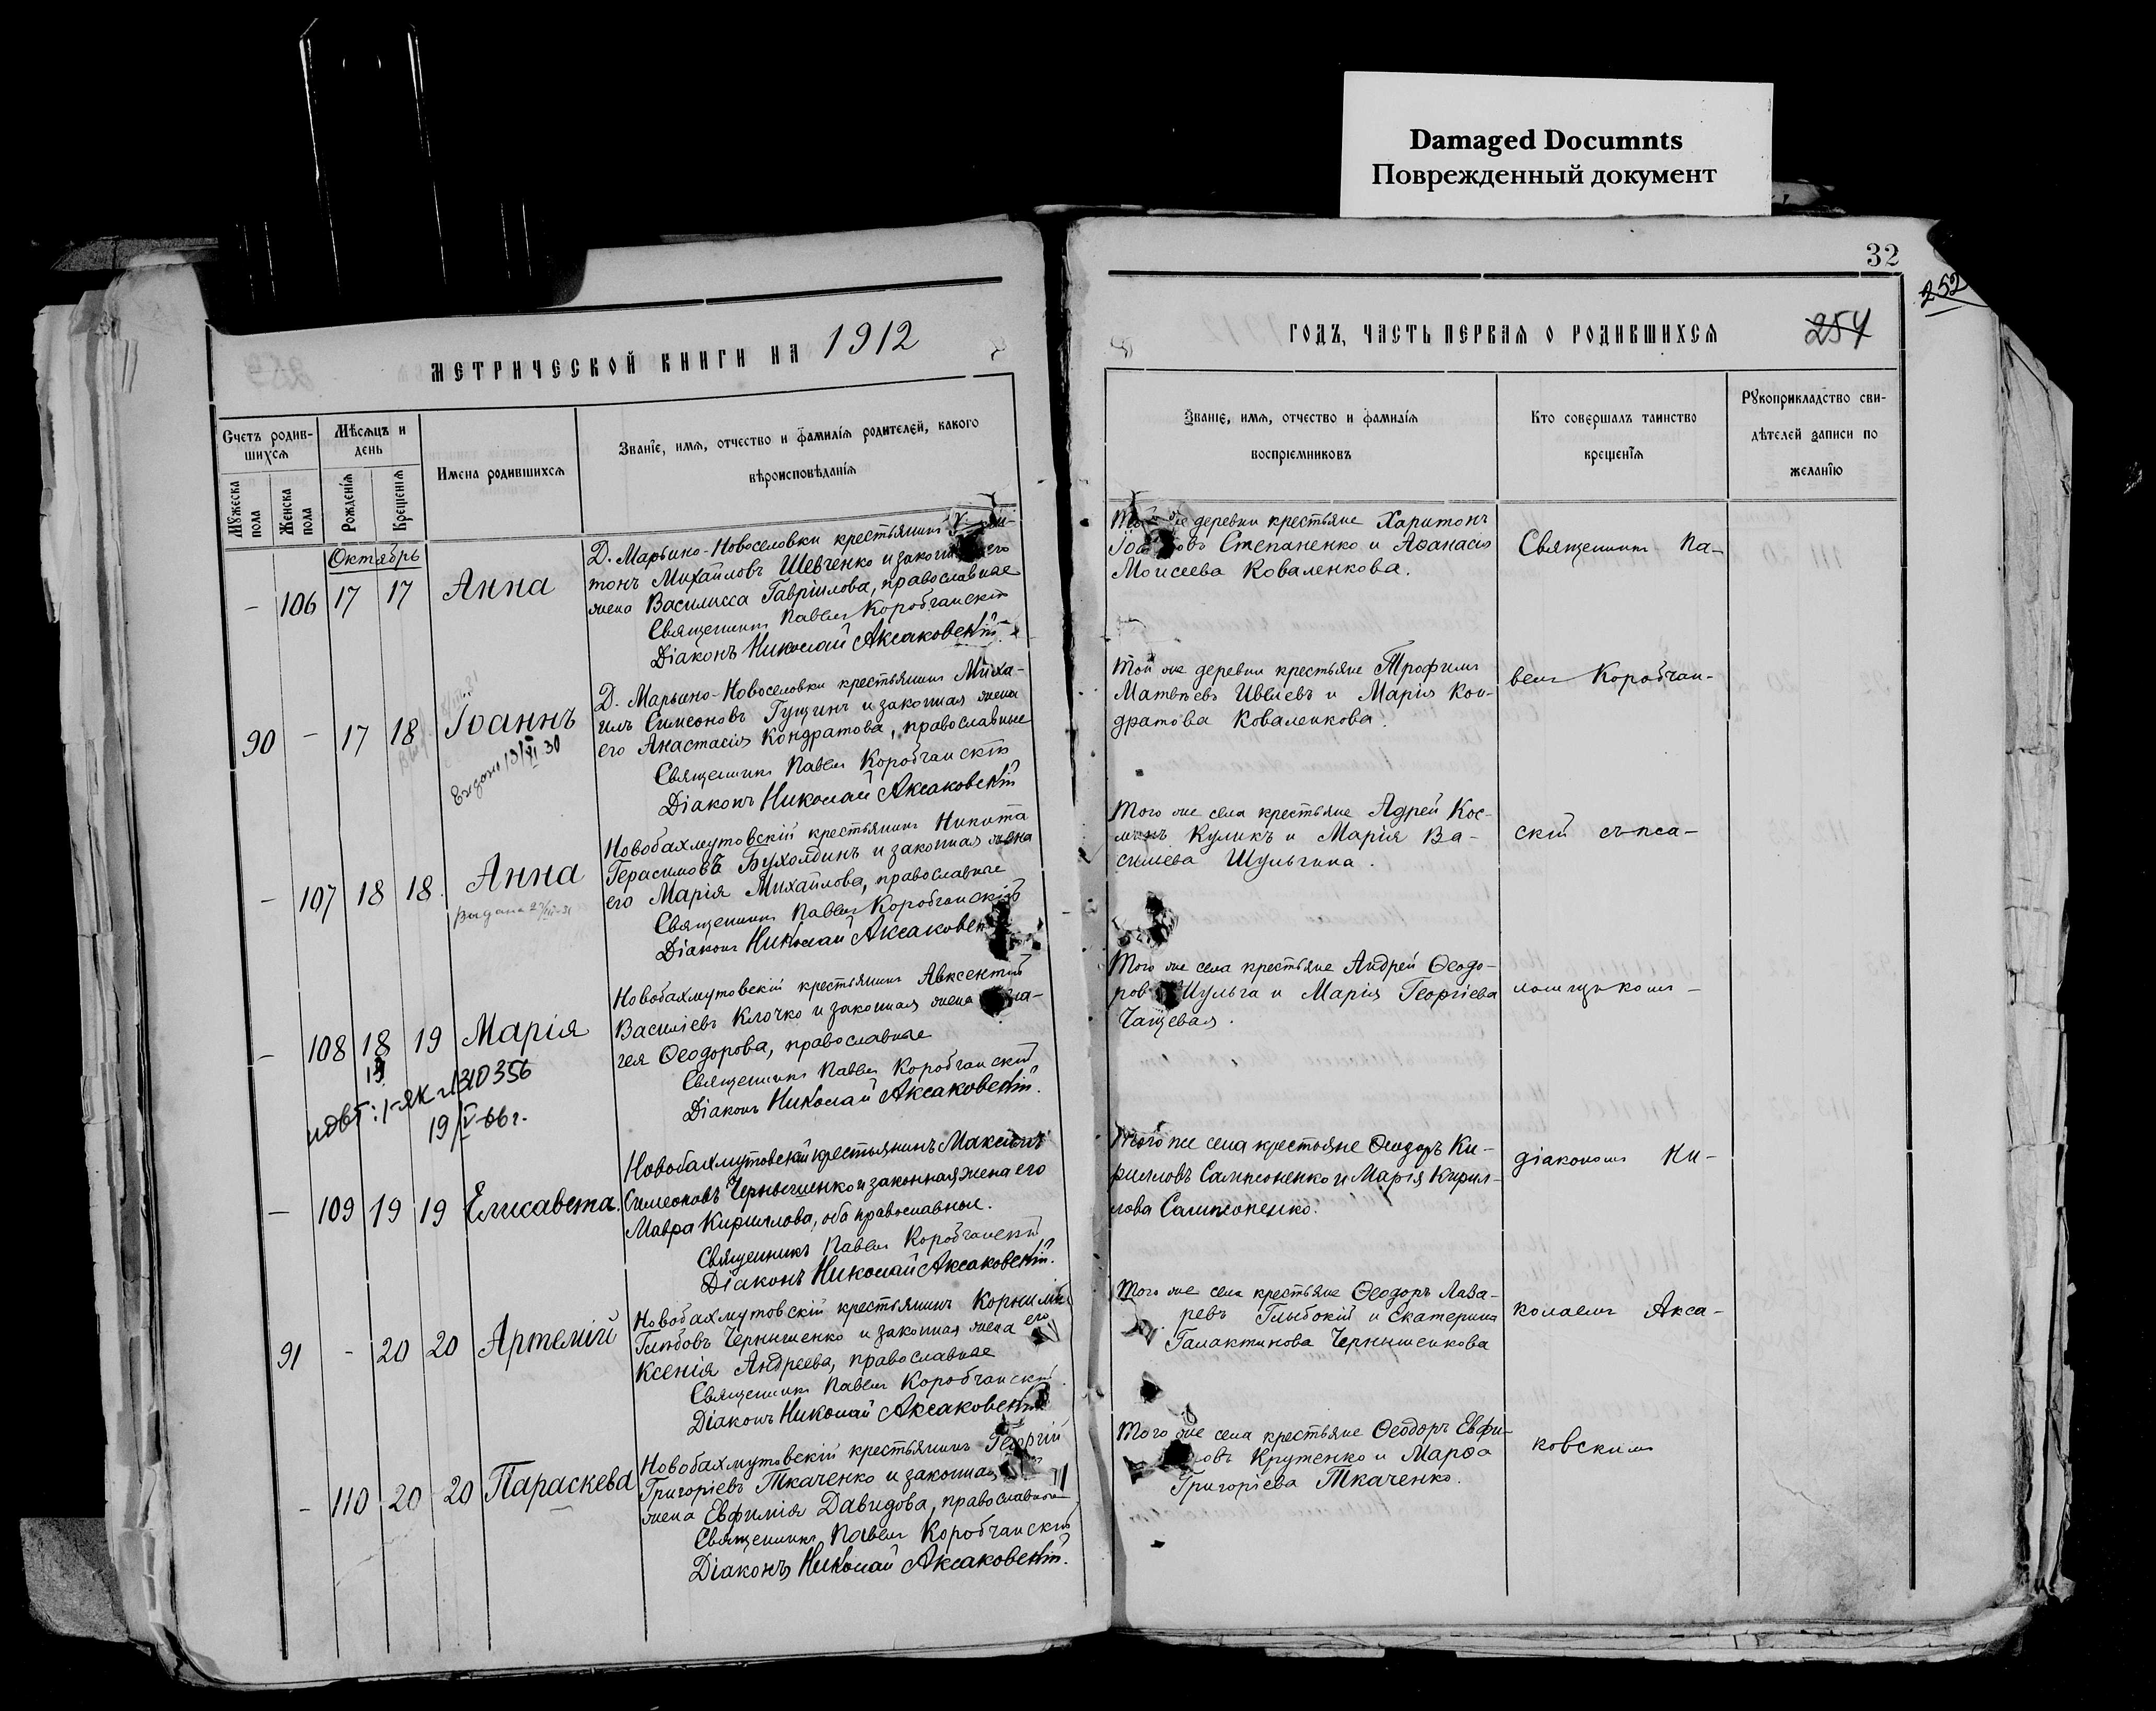 Damaged Documnts
Поврежденный документ
МЕТРИЧЕСКОЙ КНИГИ НА 1912
Счетъ родив-
шихся
Мѣсяцъ и
день
Имена родившихся
Званіе, имя, отчество и фамилія родителей, какого
вѣроисповѣданія
Мужеска
пола
Женска
пола
Рожденія
Крещенія
Октябрь
- 106 17 17 Анна
Д. Марьино-Новоселовки крестьянинъ
тонъ Михайловъ Шевченко и законная его
жена Василисса Гавріилова, православные
Священникъ Павелъ Коробчанскій
Діаконъ Николай Аксаковскій
90 - 17 18 Іоаннъ
Выдано 13/VI 30
Д. Марьино-Новоселовки крестьянинъ Миха-
илъ Симеоновъ Гущинъ и законная жена
его Анастасія Кондратова, православные
Священникъ Павелъ Коробчанскій
Діаконъ Николай Аксаковскій
- 107 18 18 Анна
Выдана
Новобахмутовскій крестьянинъ Никита
Герасимовъ Бухолдинъ и законная жена
его Марія Михайлова, православные
Священникъ Павелъ Коробчанскій
Діаконъ Николай Аксаковск
- 108 18 19 Марія
19
повт: I-ЯК №310356
19/V-66г.
Новобахмутовскій крестьянинъ Авксентій
Василіевъ Клочко и законная жена
гея Ѳеодорова, православные
Священникъ Павелъ Коробчанскій
Діаконъ Николай Аксаковскій.
- 109 19 19 Елисавета.
Новобахмутовскій крестьянинъ Максимъ
Симеоновъ Чернышенко и законная жена его
Мавра Кириллова, оба православные.
Священникъ Павелъ Коробчанскій
Діаконъ Николай Аксаковскій.
91 - 20 20 Артемій
Новобахмутовскій крестьянинъ Корнилій
Глѣбовъ Чернышенко и законная жена его
Ксенія Андреева, православные
Священникъ Павелъ Коробчанскій.
Діаконъ Николай Аксаковскій
- 110 20 20 Параскева
Новобахмутовскій крестьянинъ Георгій
Григоріевъ Ткаченко и законная
жена Евфимія Давидова, православные
Священникъ Павелъ Коробчанскій
Діаконъ Николай Аксаковскій.
32
252
ГОДЪ, ЧАСТЬ ПЕРВАЯ О РОДИВШИХСЯ
254
Званіе, имя, отчество и фамилія
воспріемниковъ
Кто совершалъ таинство
крещенія
Рукоприкладство сви-
дѣтелей записи по
желанію
Той же деревни крестьяне Харитонъ
овъ Степаненко и Аѳанасія
Моисеева Коваленкова.
Священникъ Па-
Той же деревни крестьяне Трофимъ
Матвѣевъ Ивлиевъ и Марія Кон-
дратова Коваленкова.
велъ Коробчан-
Того же села крестьяне Адрей Кос-
минъ Куликъ и Марія Ва-
силіева Шульгина.
скій съ пса-
Того же села крестьяне Андрей Ѳеодо-
ровъ Шульга и Марія Георгіева
Чащевая.
ломщикомъ -
Того же села крестьяне Ѳеодоръ Ки-
рилловъ Сампсоненко и Марія Кирил-
лова Сампсоненко.
діакономъ Ни-
Того же села крестьяне Ѳеодоръ Лаза-
ревъ Глыбокій и Екатерина
Галактинова Чернышенкова
колаемъ Акса-
Того же села крестьяне Ѳеодоръ Евфи-
овъ Крутенко и Марѳа
Григоріева Ткаченко.
ковскимъ